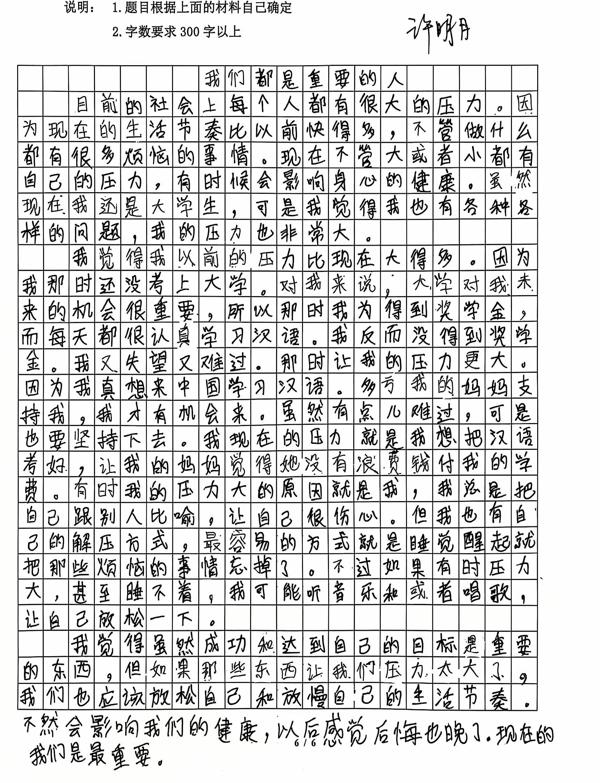 说明： 1.题目根据上面的材料自己确定
2.字数要求300字以上
许明月
我们都是重要的人
目前的社会上每个人都有很大的压力。因
为现在的生活节奏比以前快得多，不管做什么
都有很多烦恼的事情。现在不管大或者小都有
自己的压力，有时候会影响身心的健康。虽然
现在我还是大学生，可是我觉得我也有各种各
样的问题，我的压力也非常大。
我觉得我以前的压力比现在大得多。因为
我那时还没考上大学。对我来说，大学对我未
来的机会很重要，所以那时我为得到奖学金，
而每天都很认真学习汉语。我反而没得到奖学
金。我又失望又难过。那时让我的压力更大。
因为我真想来中国学习汉语。多亏我的妈妈支
持我，我才有机会来。虽然有点儿难过，可是
也要坚持下去。我现在的压力就是我想把汉语
考好，让我的妈妈觉得她没有浪费钱付我的学
费。有时我的压力大的原因就是我，我总是把
自己跟别人比喻，让自己很伤心。但我也有自
己的解压方式，最容易的方式就是睡觉醒起就
把那些烦恼的事情忘掉了。不过如果有时压力
大，甚至睡不着，我可能听音乐和或者唱歌，
让自己放松一下。
我觉得虽然成功和达到自己的目标是重要
的东西，但如果那些东西让我们压力太大了，
我们也应该放松自己和放慢自己的生活节奏。
不然会影响我们的健康，以后感觉后悔也晚了.现在的
我们是最重要。